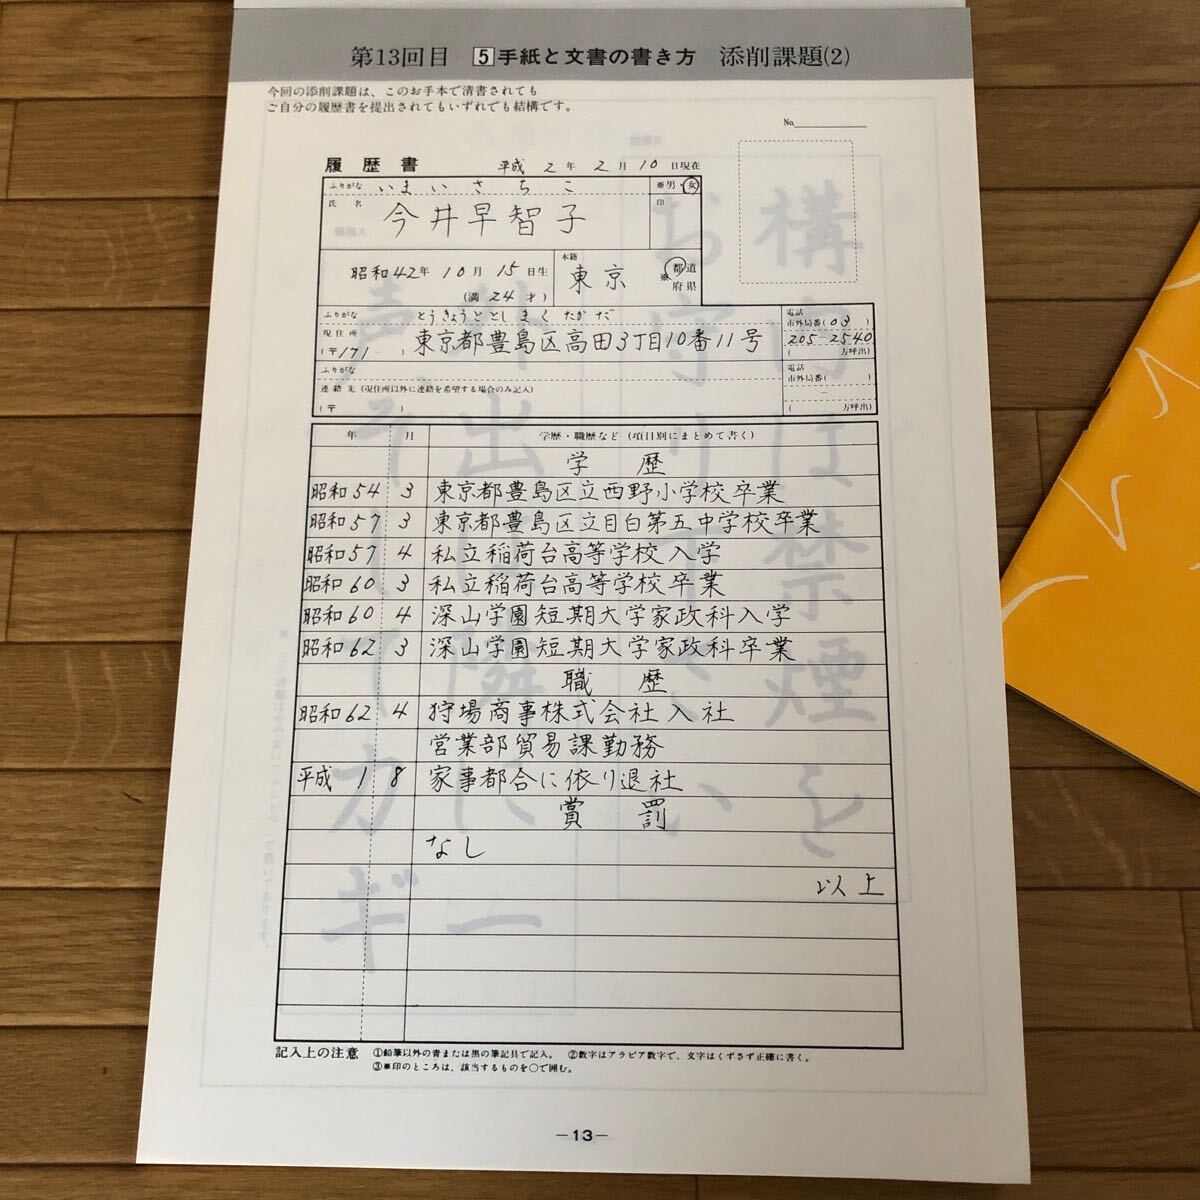 第13回目 5 手紙と文書の書き方 添削課題(2)
今回の添削課題は、このお手本で清書されても
ご自分の履歴書を提出されてもいずれでも結構です。
No.
履歴書 平成 2年 2月 10日現在
ふりがな いまい さちこ ※男・女
氏名 今井早智子 印
昭和42年 10月 15日生 (満 24 才)
本籍 東京 ※都道府県
ふりがな とうきょうととしまくたかだ
現住所 (〒171 ) 東京都豊島区高田3丁目10番11号
電話 市外局番(03) 205-2540 ( 方呼出)
ふりがな
連絡先(現住所以外に連絡を希望する場合のみ記入)
(〒 )
電話 市外局番( ) - ( 方呼出)
年 月 学歴・職歴など(項目別にまとめて書く)
学 歴
昭和54 3 東京都豊島区立西野小学校卒業
昭和57 3 東京都豊島区立目白第五中学校卒業
昭和57 4 私立稲荷台高等学校入学
昭和60 3 私立稲荷台高等学校卒業
昭和60 4 深山学園短期大学家政科入学
昭和62 3 深山学園短期大学家政科卒業
職 歴
昭和62 4 狩場商事株式会社入社
営業部貿易課勤務
平成 1 8 家事都合に依り退社
賞 罰
なし
以上
記入上の注意 ①鉛筆以外の青または黒の筆記具で記入。 ②数字はアラビア数字で、文字はくずさず正確に書く。
③※印のところは、該当するものを○で囲む。
—13—